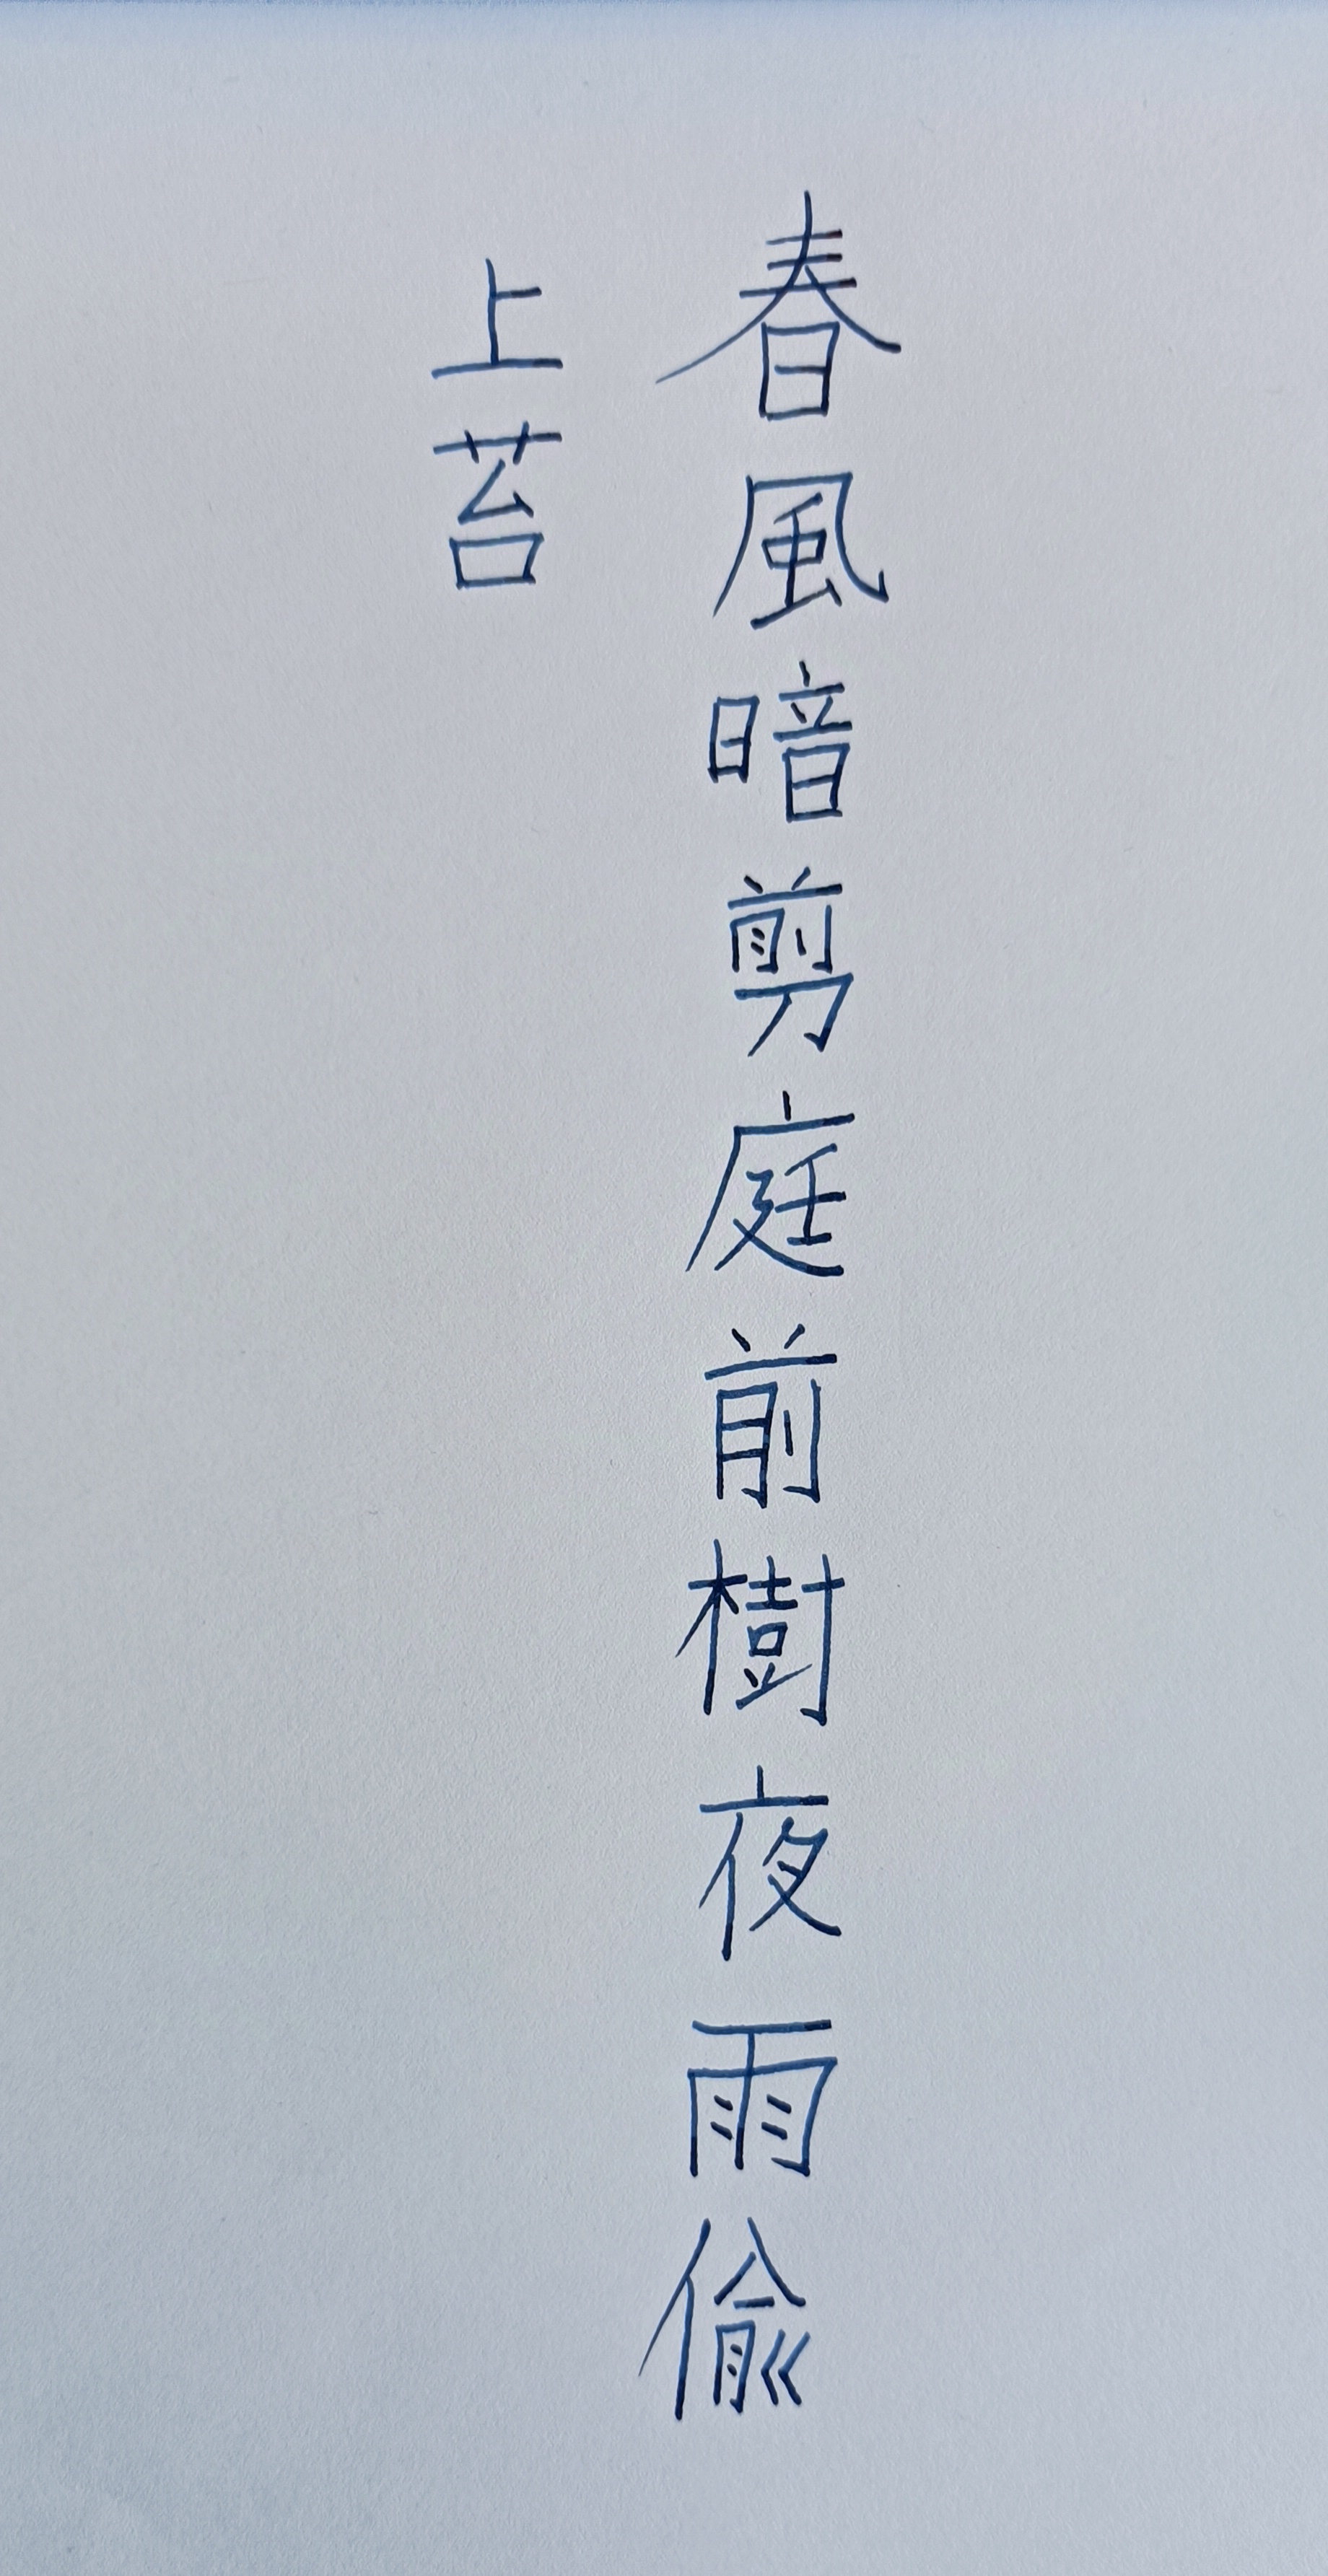 春風暗剪庭前樹夜雨偷
上苔